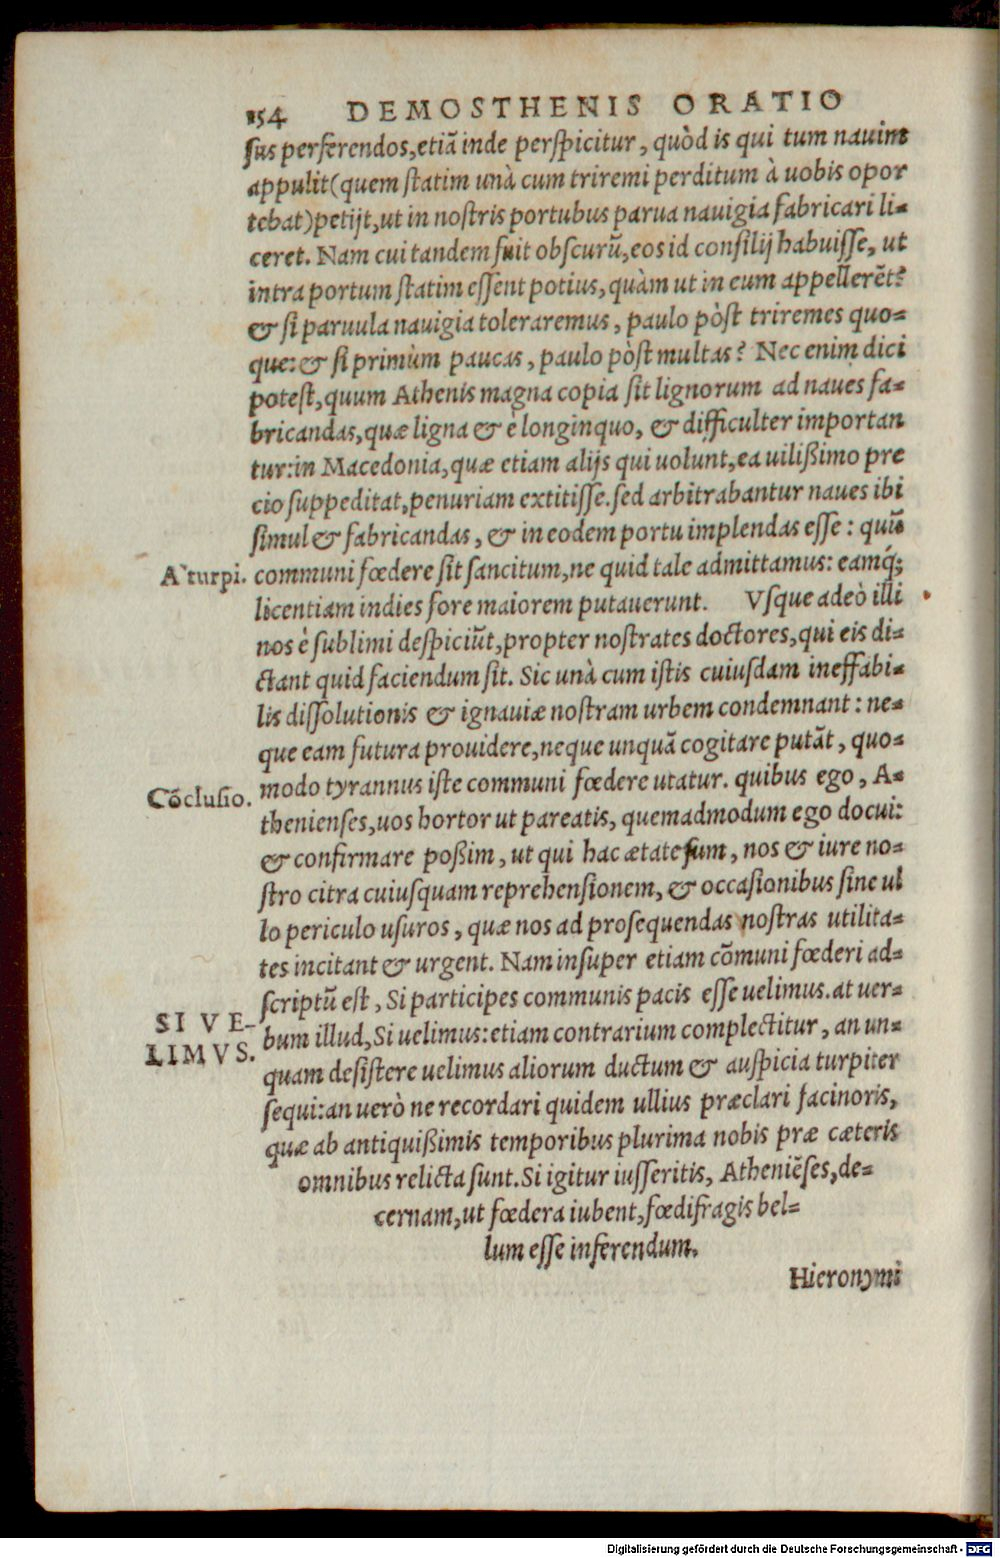 154 DEMOSTHENIS ORATIO
sus perferendos, etiā inde perspicitur, quòd is qui tum nauim
appulit (quem statim unà cum triremi perditum à uobis opor
tebat) petijt, ut in nostris portubus parua nauigia fabricari li=
ceret. Nam cui tandem fuit obscurū, eos id consilij habuisse, ut
intra portum statim essent potius, quàm ut in eum appellerēt?
& si paruula nauigia toleraremus, paulo pòst triremes quo=
que: & si primùm paucas, paulo pòst multas? Nec enim dici
potest, quum Athenis magna copia sit lignorum ad naues fa=
bricandas, quæ ligna & è longinquo, & difficulter importan
tur: in Macedonia, quæ etiam alijs qui uolunt, ea uilißimo pre
cio suppeditat, penuriam extitisse. sed arbitrabantur naues ibi
simul & fabricandas, & in eodem portu implendas esse: quū
A` turpi. communi fœdere sit sancitum, ne quid tale admittamus: eamq́;
licentiam indies fore maiorem putauerunt. Vsque adeò illi
nos è sublimi despiciūt, propter nostrates doctores, qui eis di=
ctant quid faciendum sit. Sic unà cum istis cuiusdam ineffabi=
lis dissolutionis & ignauiæ nostram urbem condemnant: ne=
que eam futura prouidere, neque unquā cogitare putāt, quo=
Cōclusio. modo tyrannus iste communi fœdere utatur. quibus ego, A=
thenienses, uos hortor ut pareatis, quemadmodum ego docui:
& confirmare poßim, ut qui hac ætate sum, nos & iure no=
stro citra cuiusquam reprehensionem, & occasionibus sine ul
lo periculo usuros, quæ nos ad prosequendas nostras utilita=
tes incitant & urgent. Nam insuper etiam cōmuni fœderi ad=
scriptū est, Si participes communis pacis esse uelimus. at uer=
SI VE-
LIMVS. bum illud, Si uelimus: etiam contrarium complectitur, an un=
quam desistere uelimus aliorum ductum & auspicia turpiter
sequi: an uerò ne recordari quidem ullius præclari facinoris,
quæ ab antiquißimis temporibus plurima nobis præ cæteris
omnibus relicta sunt. Si igitur iusseritis, Atheniēses, de=
cernam, ut fœdera iubent, fœdifragis bel=
lum esse inferendum.
Hieronymi
Digitalisierung gefördert durch die Deutsche Forschungsgemeinschaft - DFG